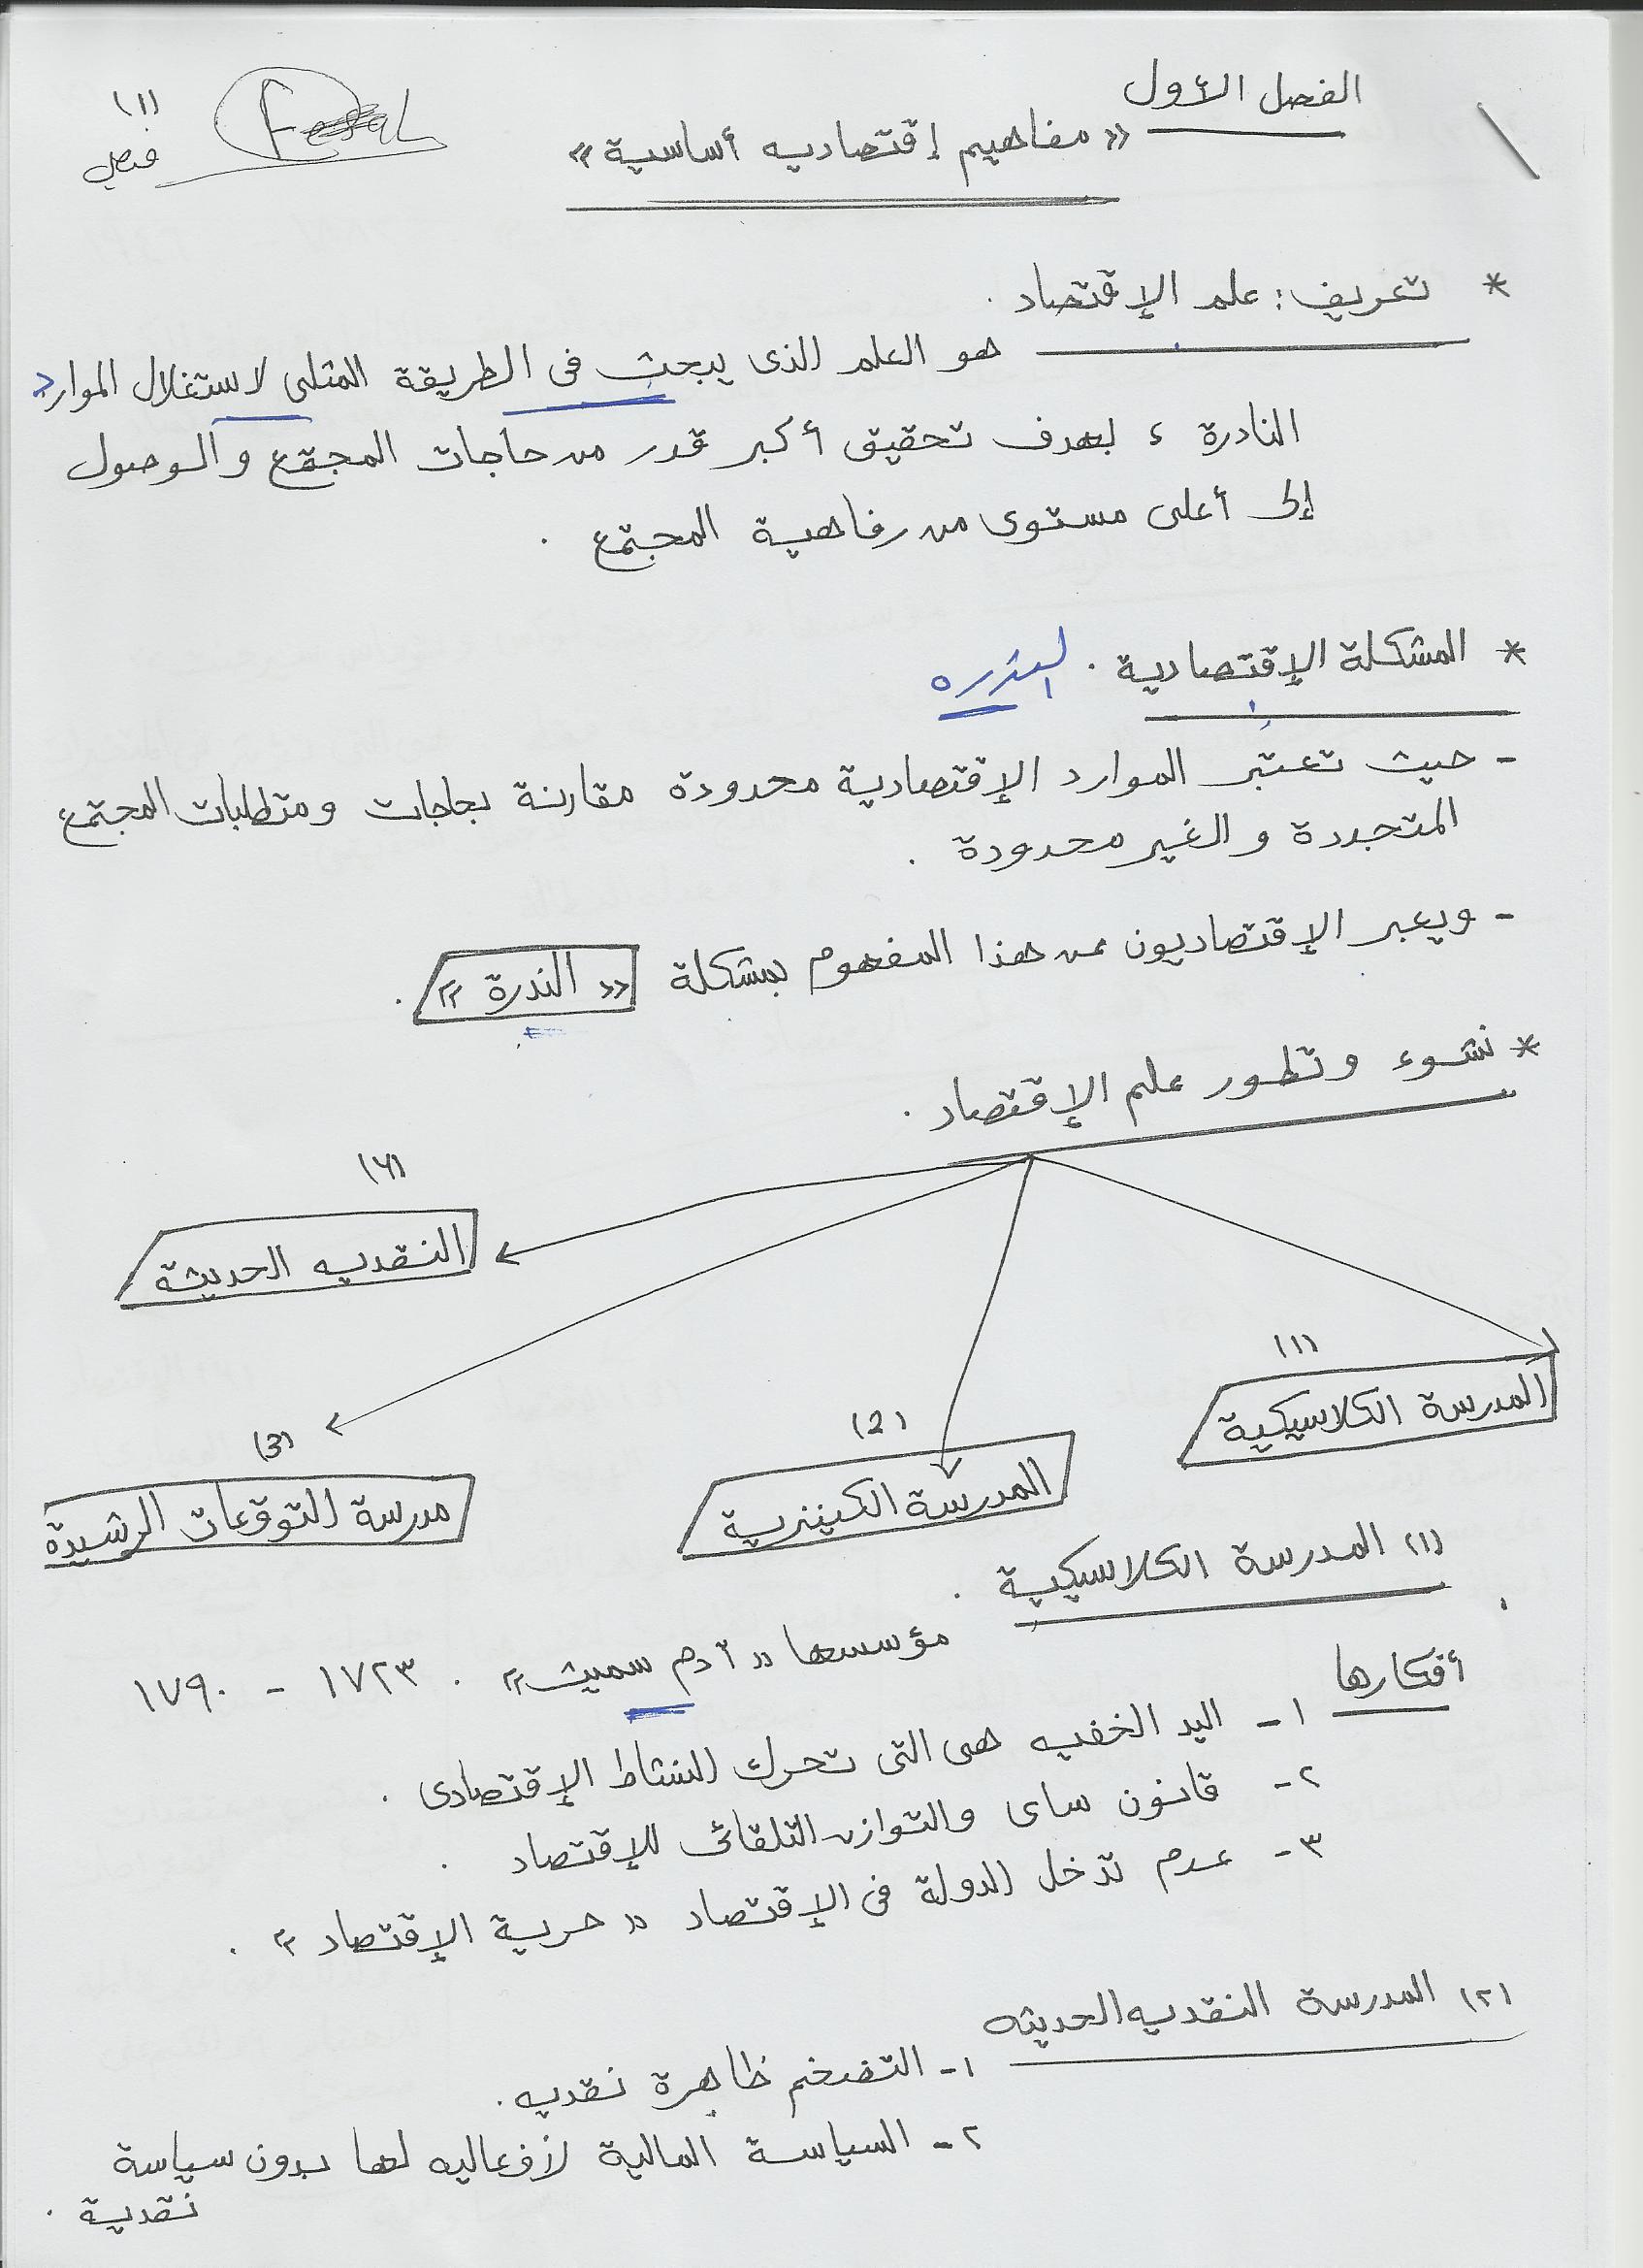 الفصل الأول
(١)
فيصل
Fesal
« مفاهيم إقتصاديه أساسية »
* تعريف : علم الإقتصاد .
هو العلم الذى يبحث فى الطريقة المثلى لاستغلال الموارد
النادرة ، بهدف تحقيق أكبر قدر من حاجات المجتمع والوصول
إلى أعلى مستوى من رفاهية المجتمع .
* المشكلة الإقتصادية . الندره
- حيث تعتبر الموارد الإقتصادية محدودة مقارنة بحاجات ومتطلبات المجتمع
المتجددة والغير محدودة .
- ويعبر الإقتصاديون عن هذا المفهوم بمشكلة « الندرة » .
* نشوء وتطور علم الإقتصاد .
النقديه الحديثة
(١)
المدرسة الكلاسيكية
(2)
المدرسة الكينزية
(3)
مدرسة التوقعات الرشيدة
(١) المدرسة الكلاسيكية .
مؤسسها « آدم سميث » . ١٧٢٣ - ١٧٩٠
أفكارها
١- اليد الخفيه هى التى تحرك النشاط الإقتصادى .
٢- قانون ساى والتوازن التلقائى للإقتصاد .
٣- عدم تدخل الدولة فى الإقتصاد « حرية الإقتصاد » .
(٢) المدرسة النقديه الحديثه
١- التضخم ظاهرة نقديه .
٢- السياسة المالية لافعاليه لها بدون سياسة
نقدية .